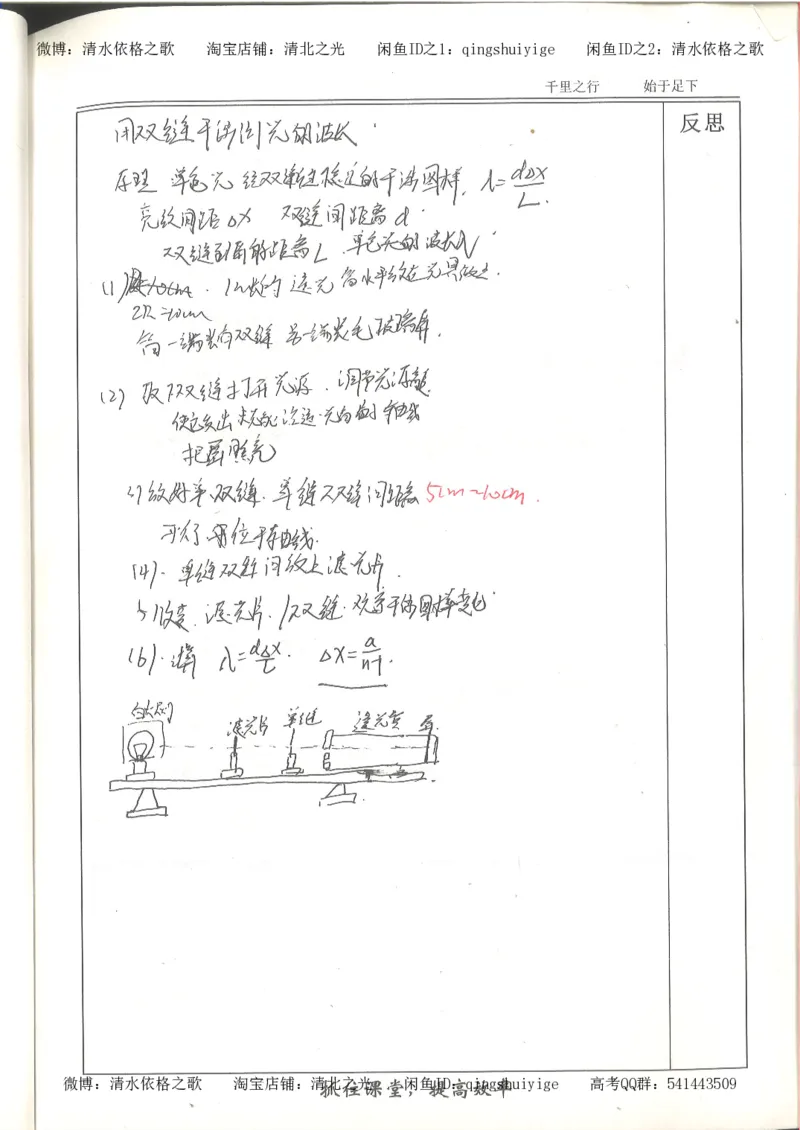 微博：清水依格之歌 淘宝店铺：清北之光 闲鱼ID之1：qingshuiyige 闲鱼ID之2：清水依格之歌
千里之行 始于足下
反思
用双缝干涉测光的波长
原理 单色光经双缝 稳定的干涉图样, λ=dΔx/L.
亮纹间距Δx 双缝间距离d
双缝到屏的距离L 单色光的波长λ
(1) 10cm. 1m长的遮光筒水平放在光具座上.
2R=10cm
筒一端装有双缝 另一端装毛玻璃屏.
(2) 取下双缝打开光源. 调节光源高度
使它发出 沿遮光筒的轴线
把屏照亮
3) 放好单.双缝. 单缝双缝间距离 5cm~10cm.
平行 位于轴线.
(4). 单缝双缝间放上滤光片.
5) 改变.滤光片./双缝.观察干涉图样变化
(6). 计算 λ=dΔx/L. Δx=a/n-1.
滤光片 单缝 遮光筒 屏
微博：清水依格之歌 淘宝店铺：清北之光 闲鱼ID：qingshuiyige 高考QQ群：541443509
抓住课堂，提高效率